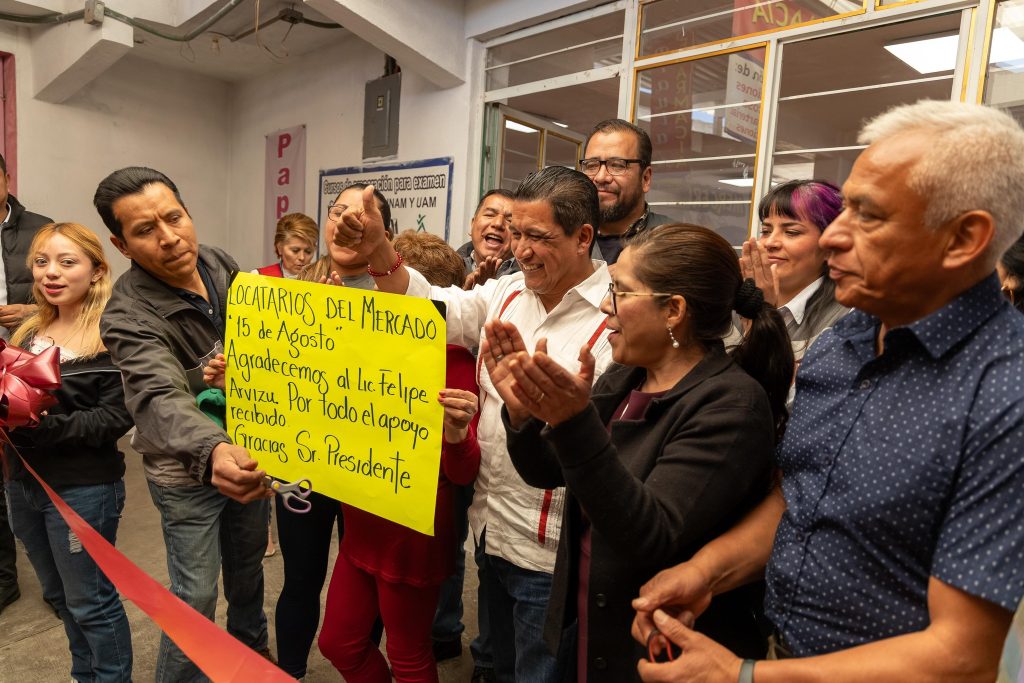 ACIA
P
a
p
Cursos de preparación para examen
UNAM Y UAM
LOCATARIOS DEL MERCADO
"15 de AGOSTO"
Agradecemos al Lic. Felipe
Arvizu. Por todo el apoyo
recibido.
Gracias Sr. Presidente